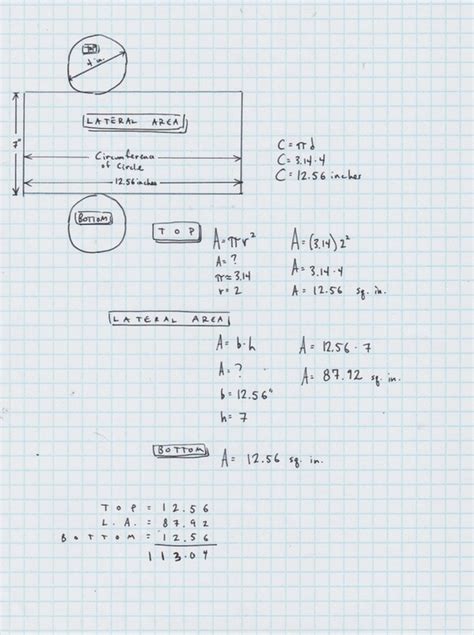 TOP
4 in.
7"
LATERAL AREA
Circumference
of Circle
12.56 inches
C = πd
C = 3.14 · 4
C = 12.56 inches
BOTTOM
TOP
A = πr²
A = ?
π = 3.14
r = 2
A = (3.14) 2²
A = 3.14 · 4
A = 12.56 sq. in.
LATERAL AREA
A = b · h
A = ?
b = 12.56"
h = 7
A = 12.56 · 7
A = 87.92 sq. in.
BOTTOM
A = 12.56 sq. in.
TOP = 12.56
L.A. = 87.92
BOTTOM = 12.56
113.04